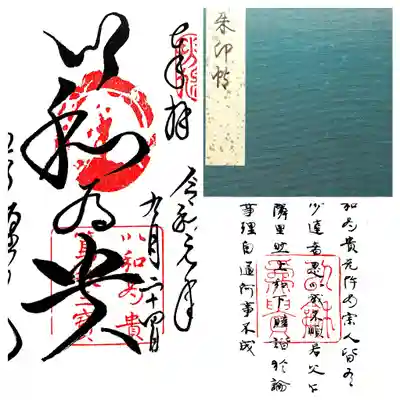 奉拝
令和元年
九月二十四日
以和為貴
以和為貴
篤敬三寶
朱印帖
和為貴无忤為宗人皆有
少達者是以或不順君父乍
隣里然上和下睦諧於論
事理自通何事不成